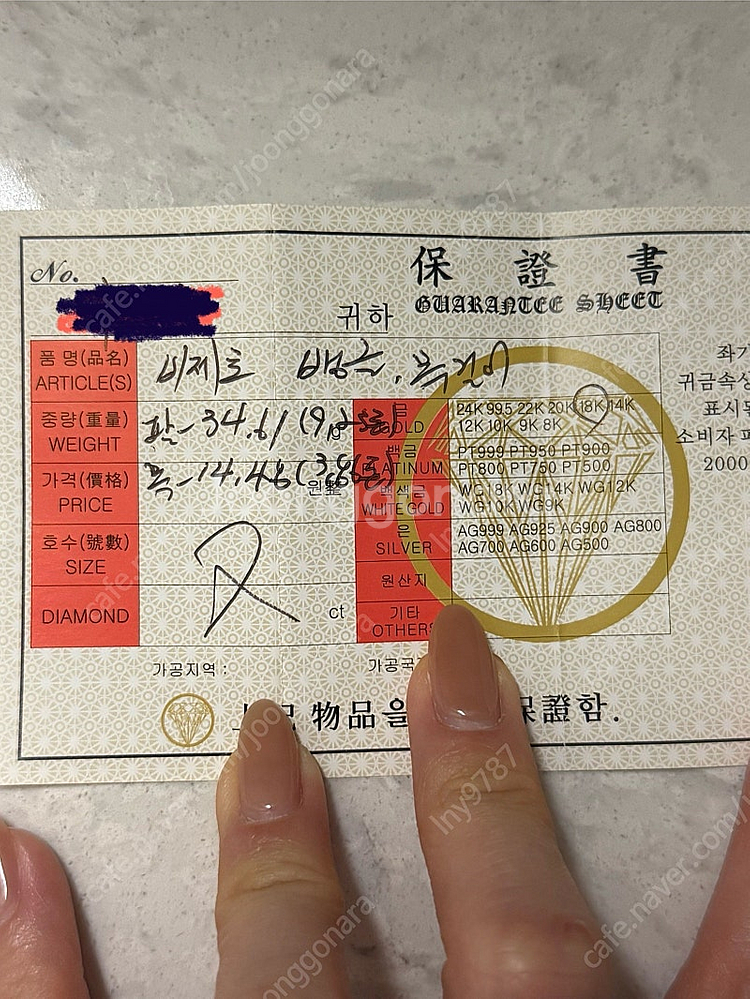 No.
保 證 書
GUARANTEE SHEET
귀하
품 명(品名)
ARTICLE(S)
비제로 뱅글, 목걸이
중량(重量)
WEIGHT
팔-34.61(9.25돈)
가격(價格)
PRICE
목-14.48(3.86돈)
원整
호수(號數)
SIZE
DIAMOND
ct
금
GOLD
24K 99.5 22K 20K 18K 14K
12K 10K 9K 8K
백금
PLATINUM
PT999 PT950 PT900
PT800 PT750 PT500
백색금
WHITE GOLD
WG18K WG14K WG12K
WG10K WG9K
은
SILVER
AG999 AG925 AG900 AG800
AG700 AG600 AG500
원산지
기타
OTHERS
좌기
귀금속상
표시된
소비자 피
2000
가공지역 :
가공국
物品을 保證함.
joonggonara
lny9787
cafe.naver.com/joonggonara